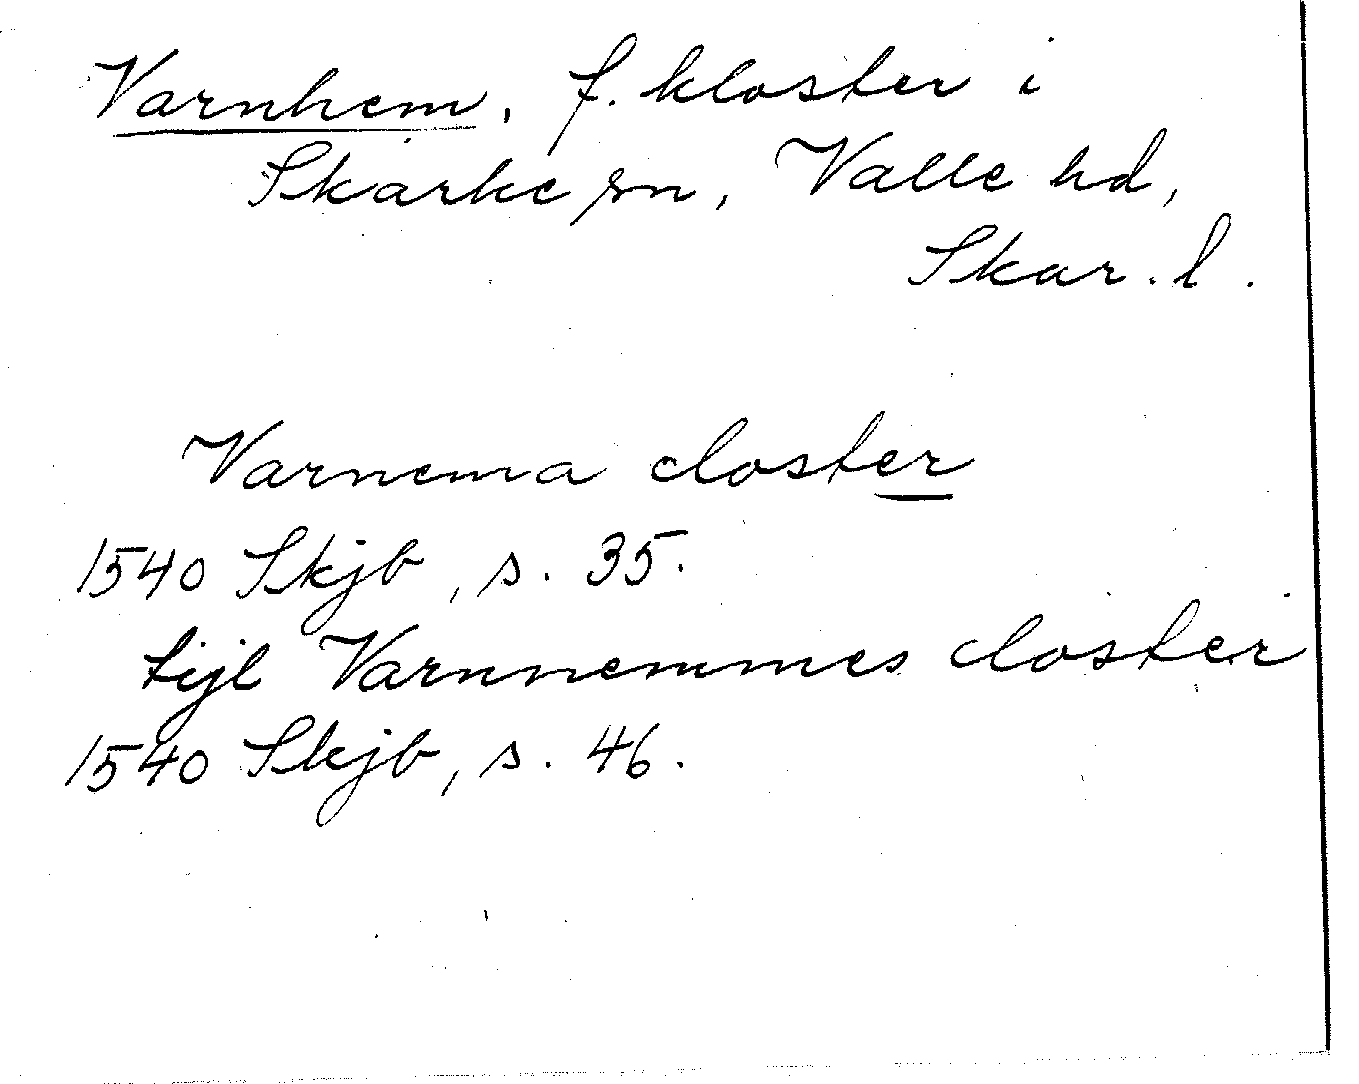 Varnhem, f. kloster i
Skarke sn, Valle hd,
Skar. l.
Varnema closter
1540 Skjb, s. 35.
tijl Varnnemmes closter
1540 Skjb, s. 46.